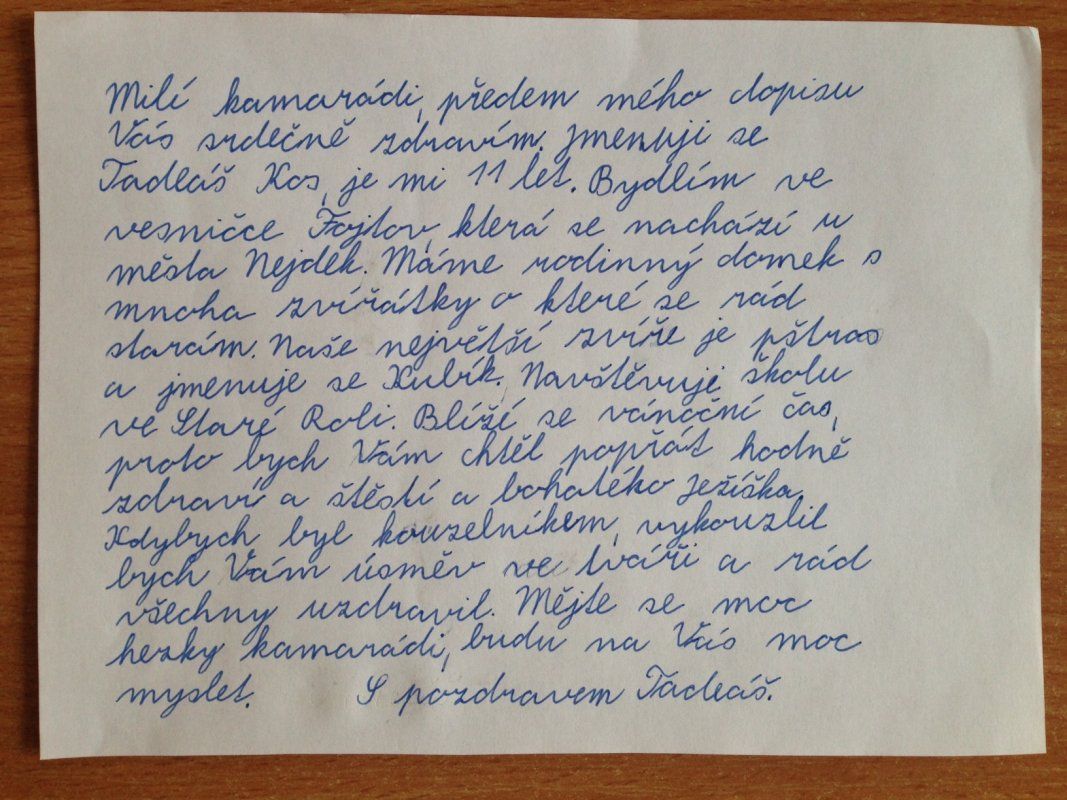 Milí kamarádi, předem mého dopisu
Vás srdečně zdravím. Jmenuji se
Tadeáš Kos, je mi 11 let. Bydlím ve
vesničce Fojtov, která se nachází u
města Nejdek. Máme rodinný domek s
mnoha zvířátky o které se rád
starám. Naše největší zvíře je pštros
a jmenuje se Kubík. Navštěvuji školu
ve Staré Roli. Blíží se vánoční čas,
proto bych Vám chtěl popřát hodně
zdraví a štěstí a bohatého Ježíška.
Kdybych byl kouzelníkem, vykouzlil
bych Vám úsměv ve tváři a rád
všechny uzdravil. Mějte se moc
hezky kamarádi, budu na Vás moc
myslet. S pozdravem Tadeáš.